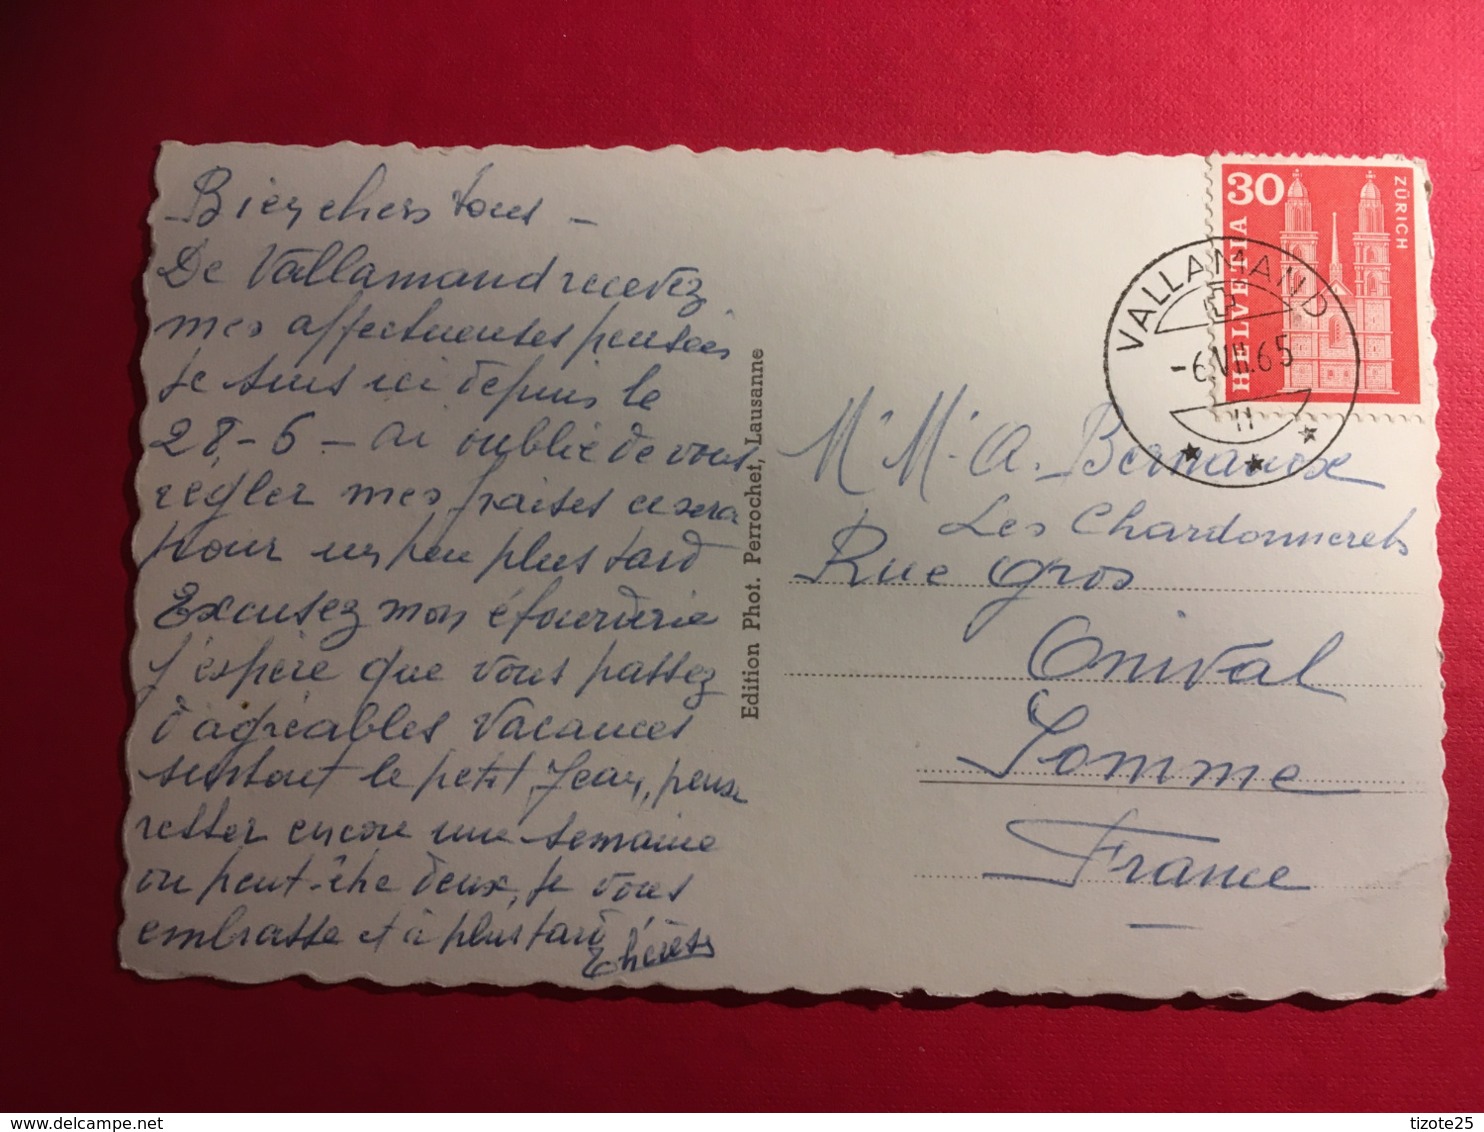 Bien chers tous -
De Vallamand recevez
mes affectueuses pensées
je suis ici depuis le
28-6 - ai oublié de vous
régler mes fraises ce sera
pour un peu plus tard
Excusez mon étourderie
J'espère que vous passez
d'agréables vacances
surtout le petit Jean, pense
rester encore une semaine
ou peut-être deux, je vous
embrasse et à plus tard
Thérèse
Edition Phot. Perrochet, Lausanne
30
HELVETIA
ZÜRICH
VALLAMAND
-6.VII.65
11
Mr Mr A.
Les Chardonnerets
Rue Gros
Onival
Somme
France
delcampe.net
tizote25